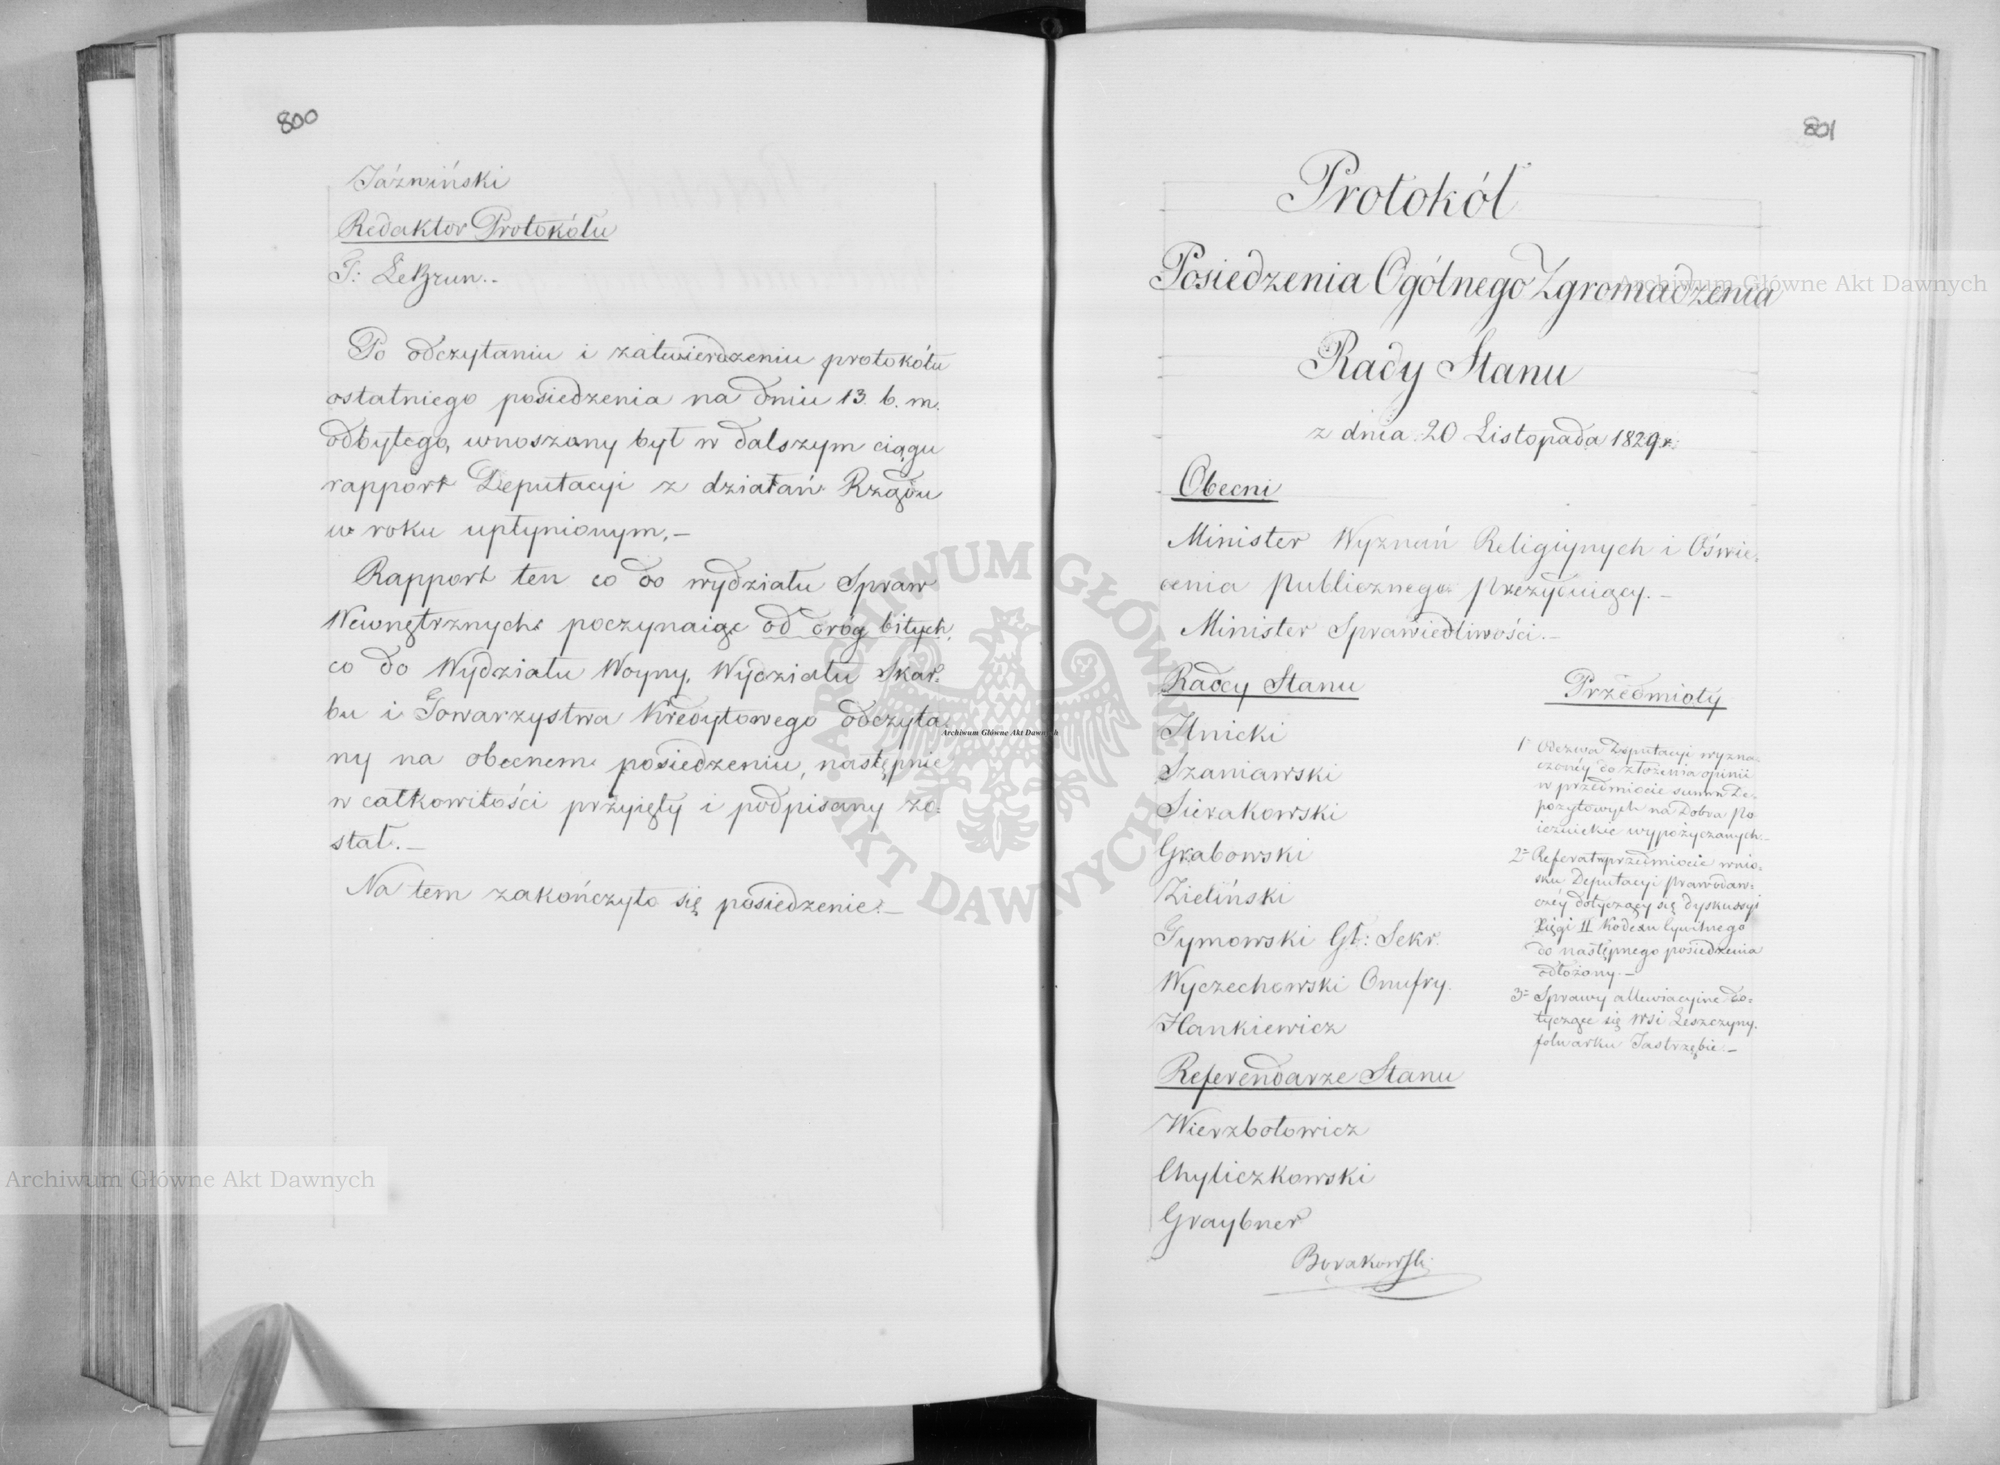 800
Jáźwiński
Redaktor Protokółu
F: LeBrun.-
Po odczytaniu i zatwierdzeniu protokółu
ostatniego posiedzenia na dniu 13. b. m.
odbytego, wnoszony był w dalszym ciągu
rapport Deputacyi z działań Rządu
w roku upłynionym.-
Rapport ten co do wydziału Spraw
Wewnętrznych poczynaiąc od dróg bitych,
co do Wydziału Woyny, Wydziału Skar-
bu i Towarzystwa Kredytowego odczyta-
ny na obecnem posiedzeniu, następnie
w całkowitości przyięty i podpisany zo-
stał.-
Na tem zakończyło się posiedzenie.-
801
Protokół
Posiedzenia Ogólnego Zgromadzenia
Rady Stanu
z dnia 20 Listopada 1829 r.
Obecni
Minister Wyznań Religijnych i Oświe-
cenia Publicznego prezyduiący.-
Minister Sprawiedliwości.-
Radcy Stanu
Ilnicki
Szaniawski
Sierakowski
Grabowski
Zieliński
Tymowski Gł: Sekr.
Wyczechowski Onufry.
Hankiewicz
Referendarze Stanu
Wierzbołowicz
Chyliczkowski
Graybner
Borakowski
Przedmioty
1° Odezwa Deputacyi wyzna-
czoney do złożenia opinii
w przedmiocie summ De-
pozytowych na Dobra
wypożyczanych.-
2° Referat w przedmiocie wnio-
sku Deputacyi prawodaw-
czéy dotyczący się dyskussyi
Xięgi II Kodexu Cywilnego
do następnego posiedzenia
odłożony.-
3° Sprawy allewiacyine do-
tyczące się wsi Leszczyny,
folwarku Jastrzębie.-
Archiwum Główne Akt Dawnych
Archiwum Główne Akt Dawnych
Archiwum Główne Akt Dawnych
ARCHIWUM GŁÓWNE AKT DAWNYCH